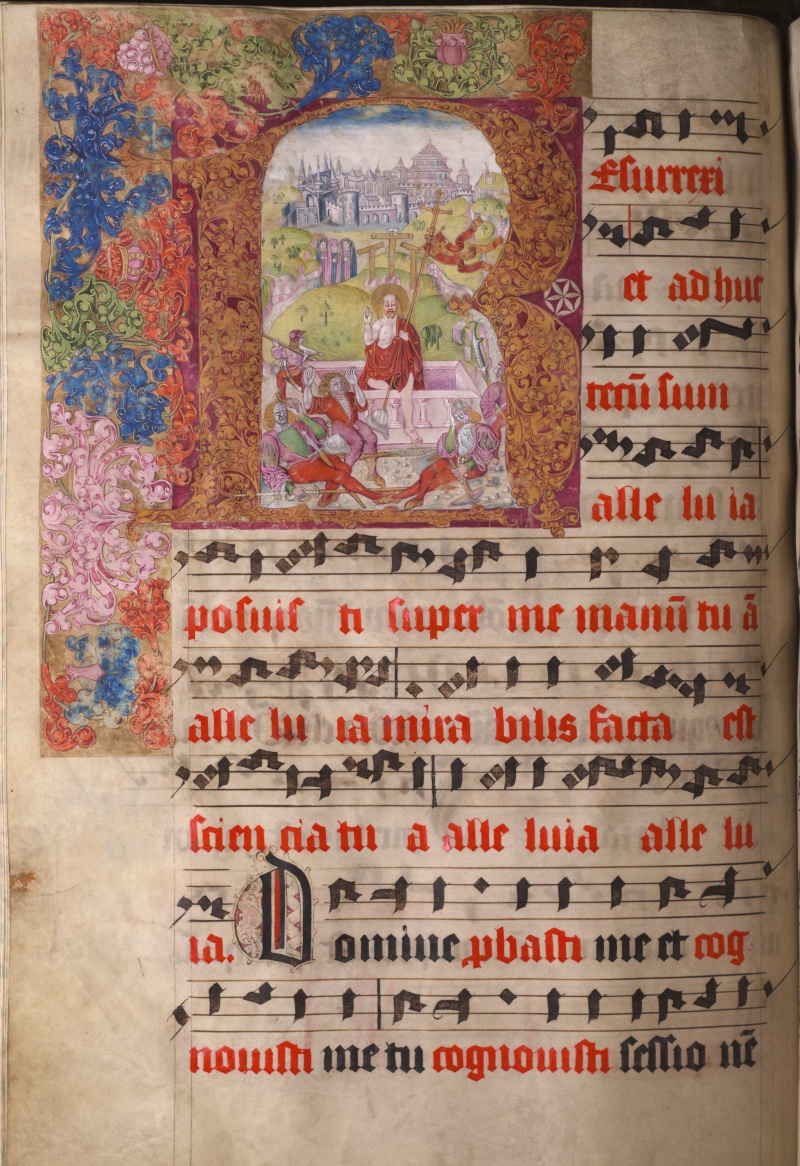 REsurrexi
et adhuc
tecū sum
alle lu ia
posuis ti super me manū tu ā
alle lu ia mira bilis facta est
scien cia tu a alle luia alle lu
ia. Domine ꝓbasti me et cog
novisti me tu cognovisti sessio nē